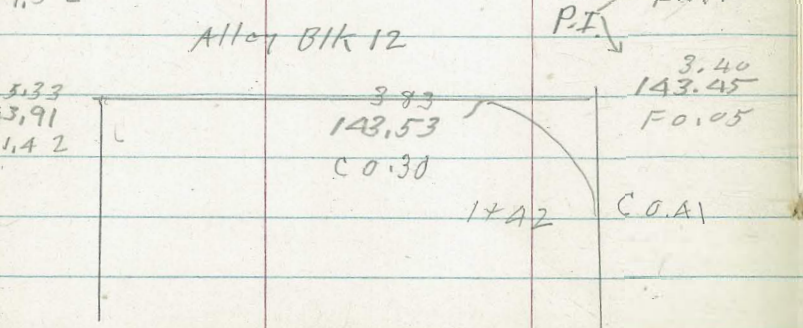 Alley Blk 12
P.I.
5.33
3.91
1.42
3.83
143.53
C 0.30
3.40
143.45
F 0.05
1+42
C 0.41